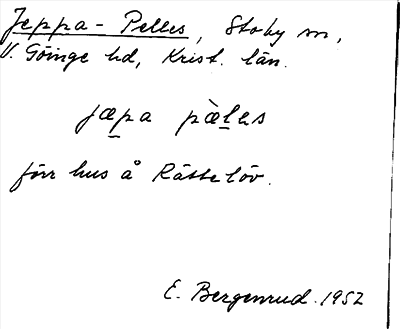 Jeppa-Pelles, Stoby sn,
V. Göinge hd, Krist. län.
jæpa pæ̀lɛs
förr hus å Rättelöv.
E. Bergenrud. 1952